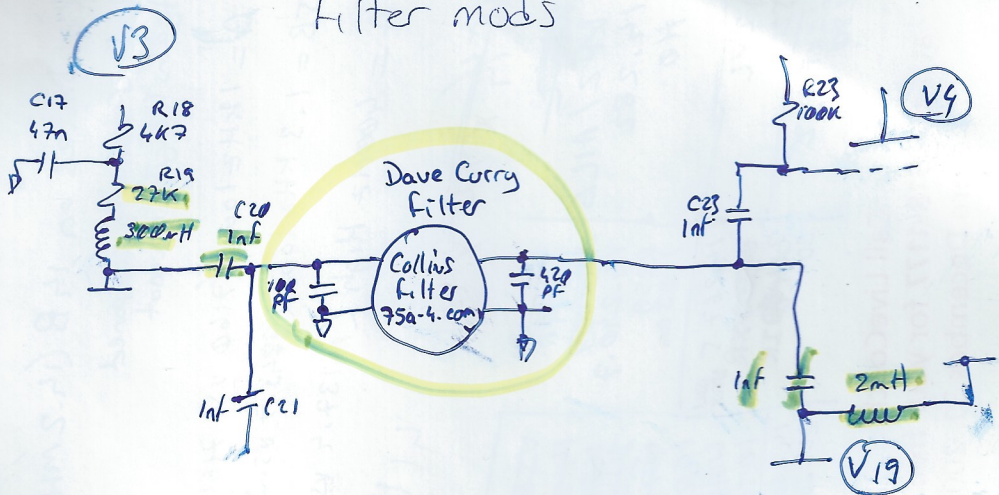 Filter mods
V3
C17
47n
R18
4K7
R19
27K
300mH
C20
1nf
1nf C21
Dave Curry
Filter
Collins
filter
75a-4.com
PF
420
PF
R23
100K
V4
C23
1nf
1nf
2mH
V19